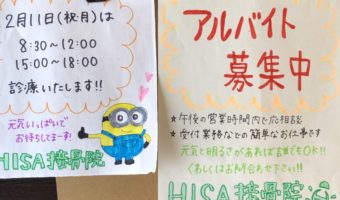 2月11日(祝・月)は
8:30~12:00
15:00~18:00
診療いたします!!
元気いっぱいで
お待ちしてまーす!
HISA接骨院
アルバイト
募集中
★午後の営業時間内で応相談
★受付業務などの簡単なお仕事です
元気と明るさがあれば誰でもOK!!
くわしくはお問合わせ下さい!!
HISA接骨院